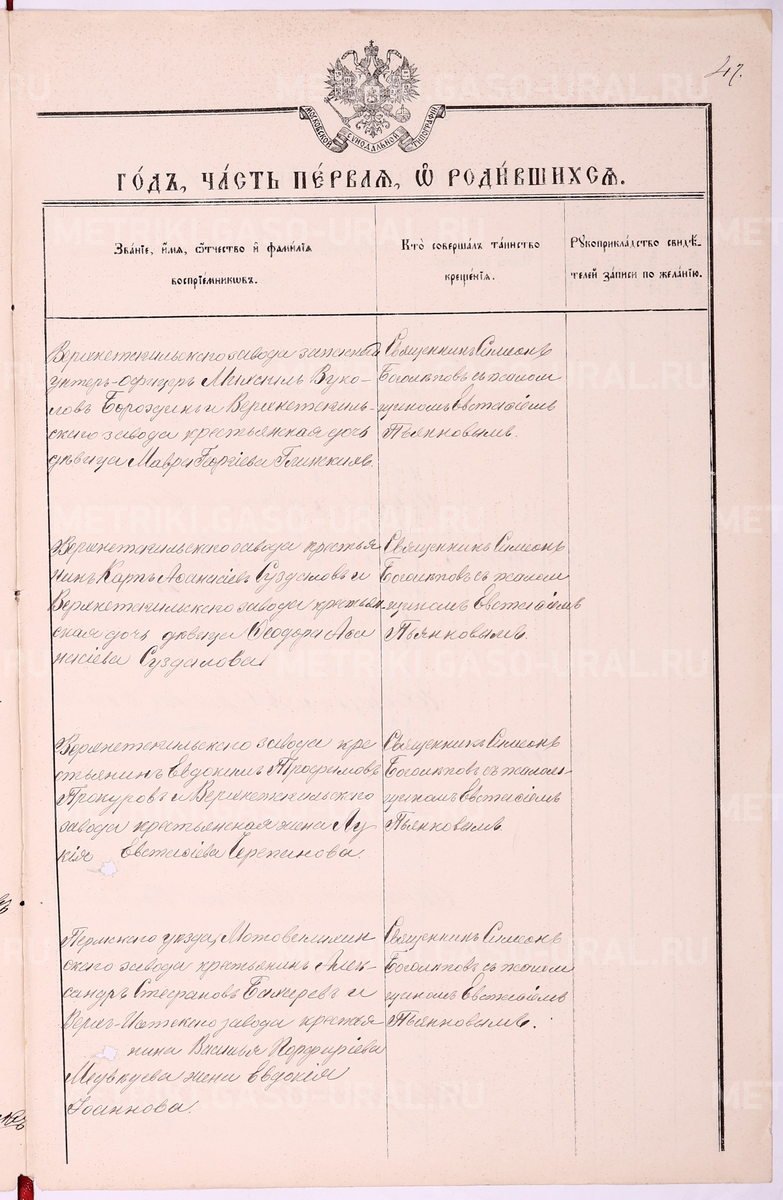 47.
МОСКОВСКОЙ СѴНОДАЛЬНОЙ ТИПОГРАФІИ
ГО́ДЪ, ЧА́СТЬ ПЕ́РВАЯ, Ѡ҆ РОДИ́ВШИХСЯ.
Зва́нїе, и҆́мя, ѻ҆́тчество и҆ фамилїя
воспрїе́мникѡвъ.
Кто̀ соверша́лъ та́инство
креще́нїя.
Рꙋкоприкла́дство свидѣ́-
телей за́писи по жела́нїю.
Верхнетагильскаго завода запасный
унтеръ-офицеръ Михаилъ Вуко-
ловъ Бороздинъ и Верхнетагиль-
скаго завода крестьянская дочь
дѣвица Мавра Георгіева
Священникъ Симеонъ
Боголѣповъ съ псалом
щикомъ Евстафіемъ
Пьянковымъ.
Верхнетагильскаго завода крестья
нинъ Карпъ Аѳанасіевъ Суздаловъ и
Верхнетагильскаго завода крестьян-
ская дочь дѣвица Ѳеодора Аѳа
насіева Суздалова
Священникъ Симеонъ
Боголѣповъ съ псалом
щикомъ Евстафіемъ
Пьянковымъ.
Верхнетагильскаго завода кре
стьянинъ Евдокимъ Трофимовъ
и Верхнетагильскаго
завода крестьянская жена Лу-
кія Евстафіева Черепанова.
Священникъ Симеонъ
Боголѣповъ съ псалом-
щикомъ Евстафіемъ
Пьянковымъ.
Пермскаго уѣзда, Мотовилихин
скаго завода крестьянинъ Алек-
сандръ Стефановъ и
Верхъ-Исетскаго завода крестья
нина Василья Порфиріева
жена Евдокія
Іоаннова.
Священникъ Симеонъ
Боголѣповъ съ псалом
щикомъ Евстафіемъ
Пьянковымъ.
METRIKI.GASO-URAL.RU